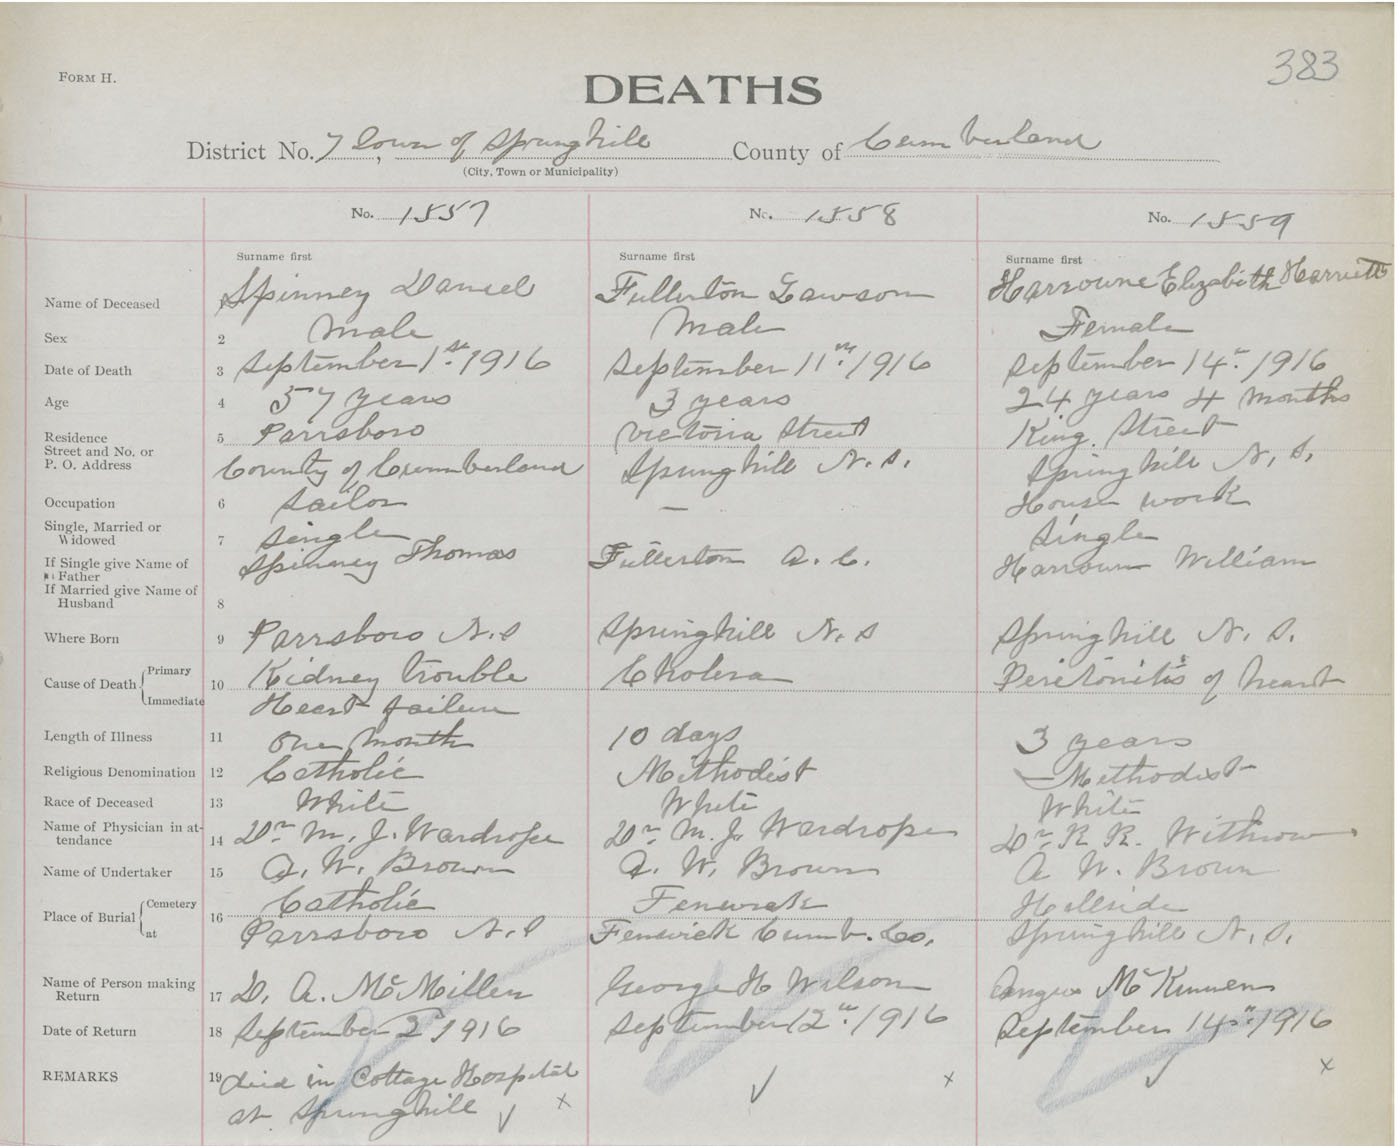 383
FORM H.
DEATHS
District No. 7, Town of Springhill County of Cumberland
(City, Town or Municipality)
No. 1557 No. 1558 No. 1559
Surname first Surname first Surname first
Name of Deceased Spinney Daniel Fullerton Lawson Harrowne Elizabeth Harriett
Sex 2 Male Male Female
Date of Death 3 September 1st. 1916 September 11th. 1916 September 14th. 1916
Age 4 57 years 3 years 24 years 4 months
Residence 5 Parrsboro Victoria Street King. Street
Street and No. or
P. O. Address County of Cumberland Springhill N. S. Springhill N. S.
Occupation 6 Sailor — House work
Single, Married or
Widowed 7 Single Single
If Single give Name of Father Spinney Thomas Fullerton A. C. Harroun William
If Married give Name of
Husband 8
Where Born 9 Parrsboro N.S Springhill N.S Springhill N. S.
Cause of Death Primary 10 Kidney trouble Cholera Peritonitis of heart
Immediate Heart failure
Length of Illness 11 One month 10 days 3 years
Religious Denomination 12 Catholic Methodist Methodist
Race of Deceased 13 White White White
Name of Physician in at-
tendance 14 Dr M. J. Wardrope Dr M. J. Wardrope Dr R. R. Withrow
Name of Undertaker 15 A. W. Brown A. W. Brown A W. Brown
Place of Burial Cemetery 16 Catholic Fenwick Hillside
at Parrsboro N.S Fenwick Cumb. Co. Springhill N. S.
Name of Person making
Return 17 D. A. McMillen George H Wilson Angus McKinnen
Date of Return 18 September 2d 1916 September 12th. 1916 September 14th. 1916
REMARKS 19 died in Cottage Hospital
at Springhill